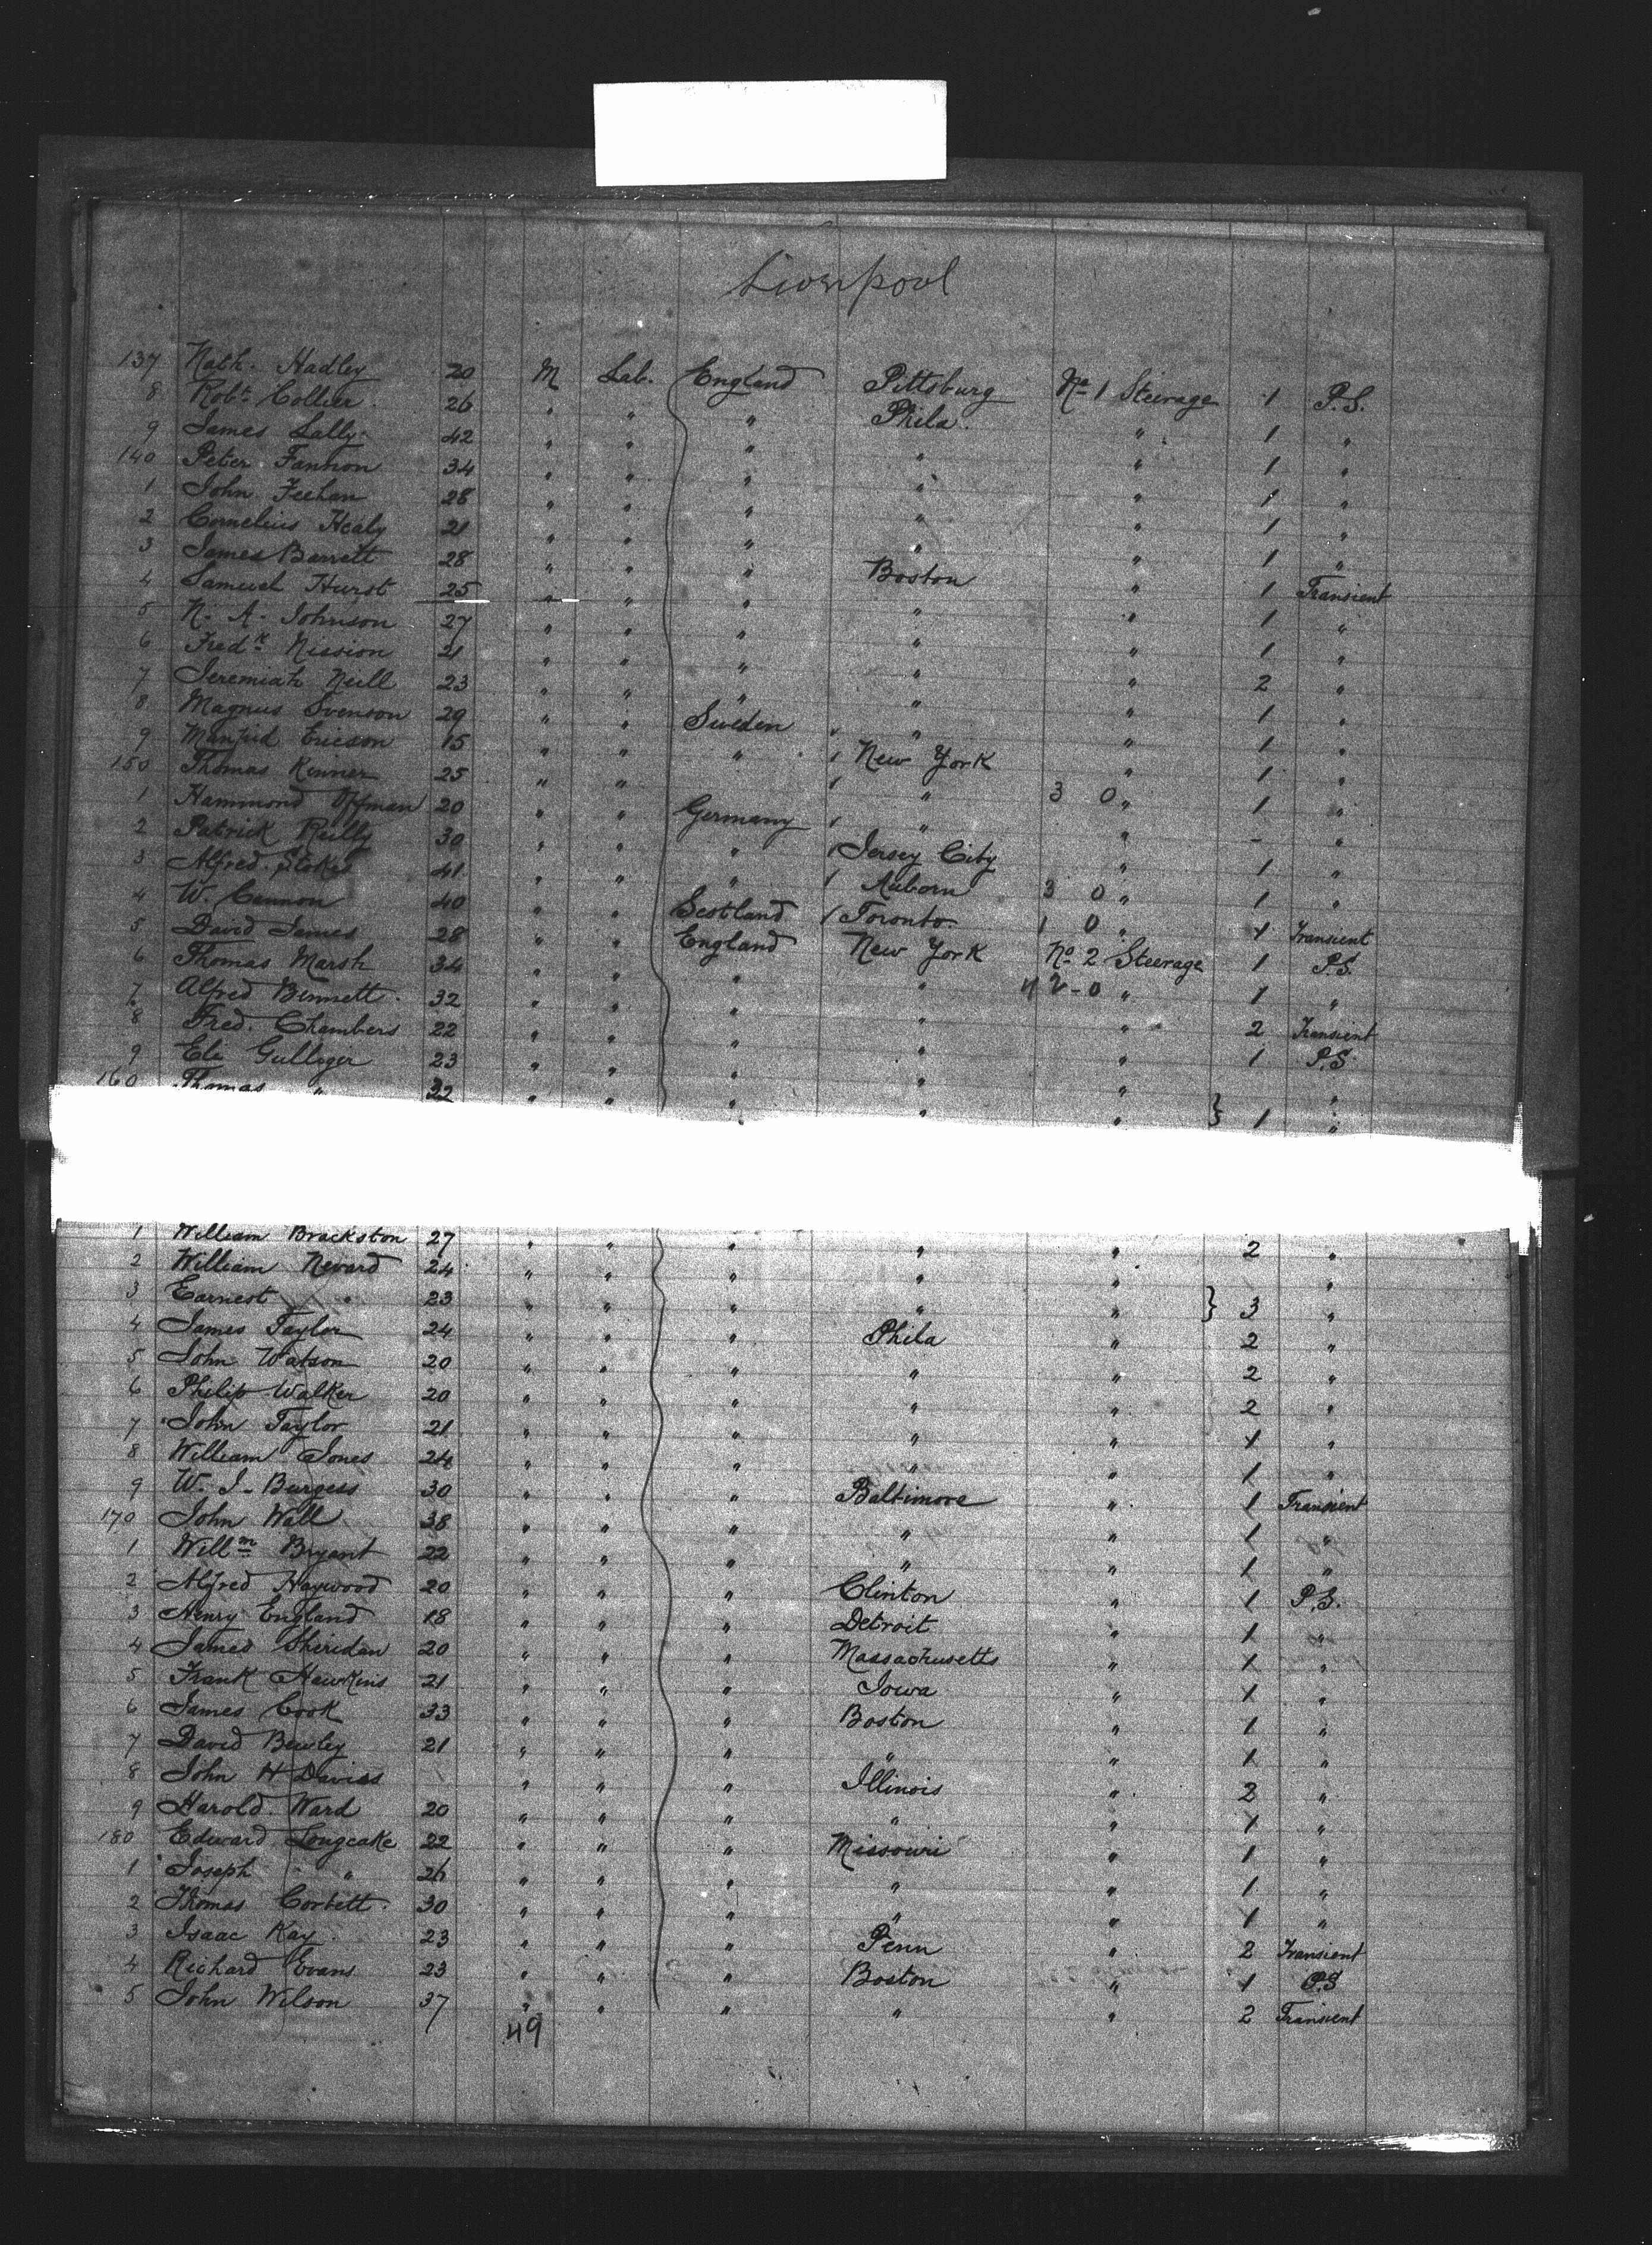 Liverpool
137 Nath. Hadley 20 M Lab. England Pittsburg No 1 Steerage 1 P.S.
8 Robt Collier 26 " " " Phila. " 1 "
9 James Lally 42 " " " " " 1 "
140 Peter Fannon 34 " " " " " 1 "
1 John Feehan 28 " " " " " 1 "
2 Cornelius Healy 21 " " " " " 1 "
3 James Barrett 28 " " " Boston " 1 Transient
4 Samuel Hurst 25 " " " " " 1 "
5 N. A. Johnson 27 " " " " " 1 "
6 Fredk Nission 21 " " " " " 2 "
7 Jeremiah Neill 23 " " " " " 1 "
8 Magnus Svenson 29 " " Sweden " " 1 "
9 Manfrid Ericson 15 " " " New York " 1 "
150 Thomas Kinner 25 " " " 3 0 " 1 "
1 Hammond Offman 20 " " Germany " " - "
2 Patrick Reilly 30 " " " Jersey City " 1 "
3 Alfred Stokes 41 " " " Auborn 3 0 " 1 "
4 W. Cannon 40 " " Scotland Toronto 1 0 " 1 Transient
5 David James 28 " " England New York No 2 Steerage 1 P.S.
6 Thomas Marsh 34 " " " " 2-0 " 1 "
7 Alfred Bennett 32 " " " " " 2 Transient
8 Fred. Chambers 22 " " " " " 1 P.S
9 Eli Gulliger 23 " " " " " "
160 Thomas " 22 " " " " " } 1 "
1 William Brackston 27 " " " " " 2 "
2 William Nevard 24 " " " " " "
3 Earnest " 23 " " " " " } 3 "
4 James Taylor 24 " " " Phila " 2 "
5 John Watson 20 " " " " " 2 "
6 Philip Walker 20 " " " " " 2 "
7 John Taylor 21 " " " " " 1 "
8 William Jones 24 " " " " " 1 "
9 W. J. Burgess 30 " " " Baltimore " 1 Transient
170 John Wall 38 " " " " " 1 "
1 Willm Bryant 22 " " " " " 1 "
2 Alfred Haywood 20 " " " Clinton " 1 P.S.
3 Henry England 18 " " " Detroit " 1 "
4 James Sheridan 20 " " " Massachusetts " 1 "
5 Frank Hawkins 21 " " " Iowa " 1 "
6 James Cook 33 " " " Boston " 1 "
7 David Bewley 21 " " " " " 1 "
8 John H Davies " " " Illinois " 2 "
9 Harold Ward 20 " " " " " 1 "
180 Edward Longcake 22 " " " Missouri " 1 "
1 Joseph " 26 " " " " " 1 "
2 Thomas Corbett 30 " " " " " 1 "
3 Isaac Kay 23 " " " Penn " 2 Transient
4 Richard Evans 23 " " " Boston " 1 P.S
5 John Wilson 37 " " " " " 2 Transient
49